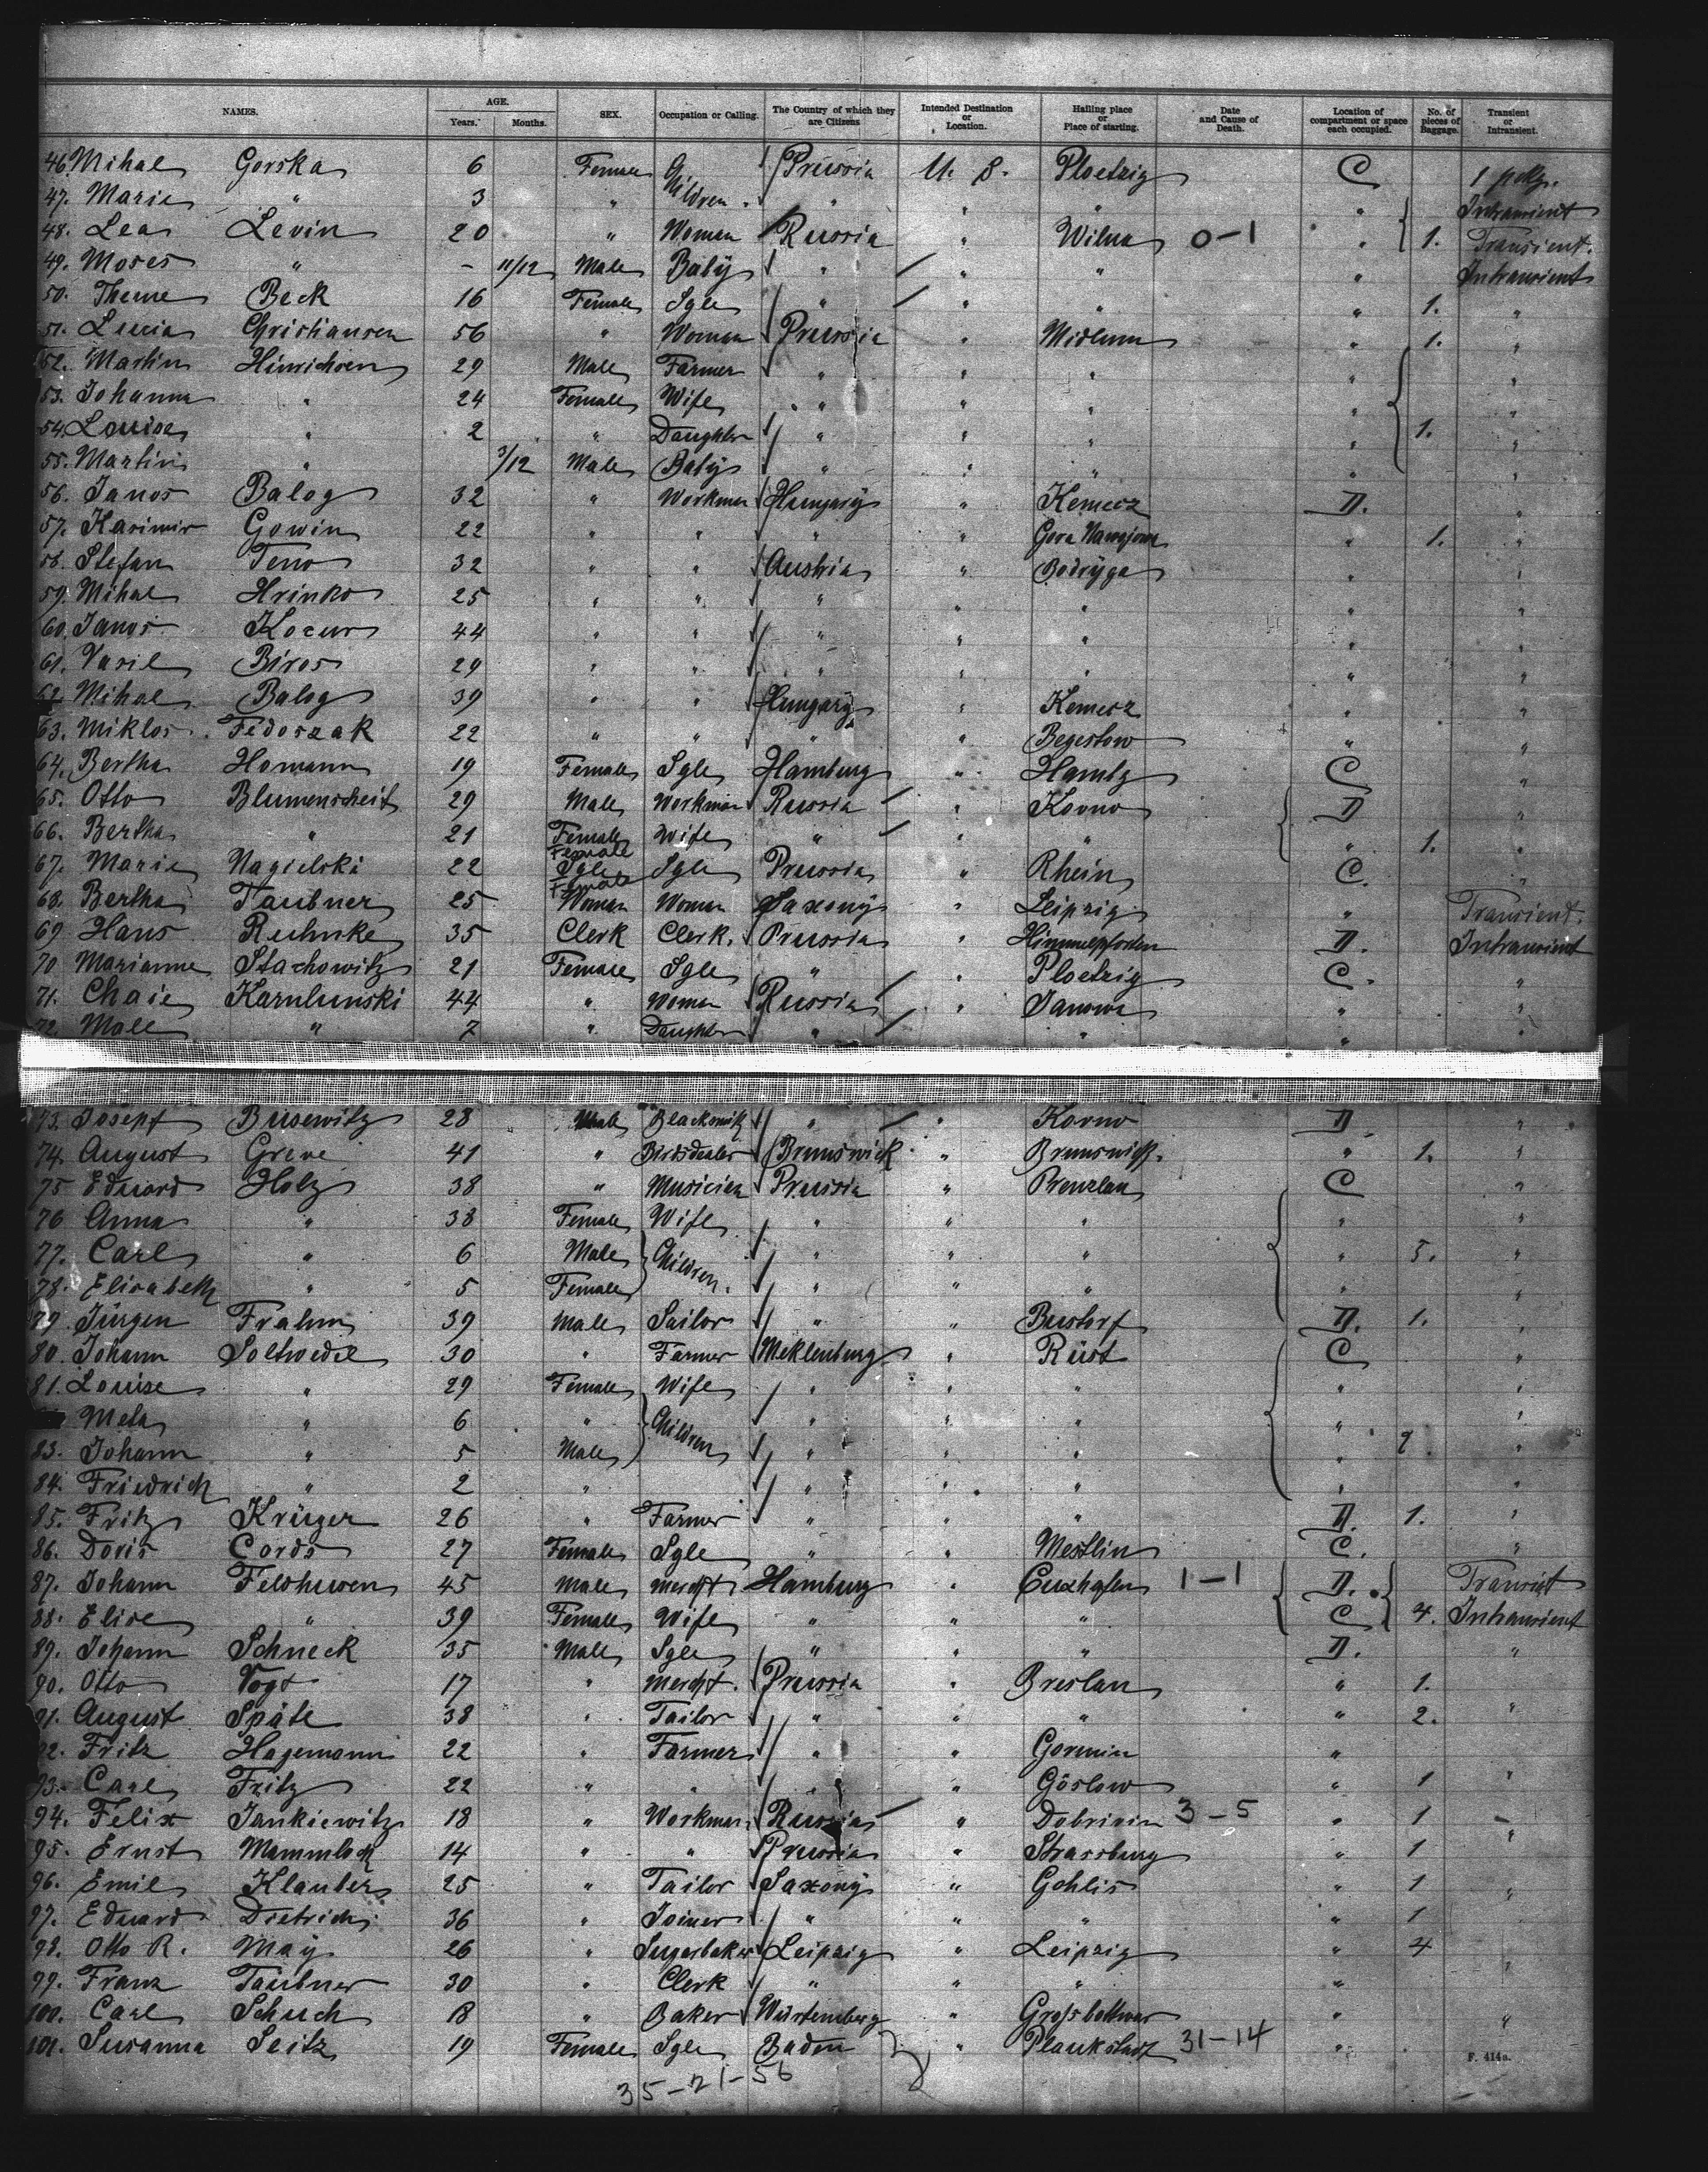 NAMES. AGE. Years. Months. SEX. Occupation or Calling. The Country of which they are Citizens Intended Destination or Location. Hailing place or Place of starting. Date and Cause of Death. Location of compartment or space each occupied. No. of pieces of Baggage. Transient or Intransient.
46. Mihal Gorska 6 Female Children Prussia U. S. Ploetzig C 1 pckg.
47. Marie " 3 " " " " " Intransient
48. Lea Levin 20 " Woman Russia " Wilna 0-1 " 1. Transient.
49. Moses " - 11/12 Male Baby " " " " Intransient
50. Theme Beck 16 Female Sgle " " " " 1. "
51. Lucia Christiansen 56 " Woman Prussia " Midlum " 1. "
52. Martin Hinrichsen 29 Male Farmer " " " " "
53. Johanna " 24 Female Wife " " " " "
54. Louise " 2 " Daughter " " " " 1. "
55. Martin " 3/12 Male Baby " " " " "
56. Janos Balog 32 " Workman Hungary " Kemecz D. "
57. Kasimir Gowin 22 " " " " Gora 1. "
58. Stefan Teno 32 " " Austria " Bodryga " "
59. Mihal Hrinko 25 " " " " " " "
60. Janos Kocur 44 " " " " " " "
61. Vasil Biros 29 " " " " " " "
62. Mihal Balog 39 " " Hungary " Kemecz " "
63. Miklos Fedoszak 22 " " " " Begestow " "
64. Bertha Homann 19 Female Sgle Hamburg " Hambg C "
65. Otto Blumenscheit 29 Male Workman Russia " Kovno D "
66. Bertha " 21 Female Wife " " " " 1. "
67. Marie Nagielski 22 Female Sgle Sgle Prussia " Rhein C. "
68. Bertha Taubner 25 Female Woman Woman Saxony " Leipzig " Transient.
69 Hans Ruhnke 35 Clerk Clerk. Prussia " Himmelpforten D. Intransient
70 Marianne Stachowitz 21 Female Sgle " " Ploetzig C. "
71. Chaie Karulunski 44 " Woman Russia " Janowa " "
72. Malle " 7 " Daughter " " " "
73. Josepf Busewitz 28 Male Blacksmith " " Kovno D "
74. August Greve 41 " Birdsdealer Brunswick " Brunswick. " 1. "
75 Eduard Holz 38 " Musician Prussia " Prenzlau C "
76 Anna " 38 Female Wife " " " " "
77. Carl " 6 Male Children " " " " 5. "
78. Elisabeth " 5 Female " " " " "
79. Jürgen Frahm 39 Male Sailor " " Bustorf D. 1. "
80. Johann Soltwedel 30 " Farmer Meklenburg " Rüst C "
81. Louise " 29 Female Wife " " " " "
Meta " 6 " Children " " " " "
83. Johann " 5 Male " " " " "
84. Friedrich " 2 " " " " " "
85. Fritz Krüger 26 " Farmer " " " D. 1. "
86. Doris Cords 27 Female Sgle " " Mestlin C. "
87. Johann Feldhusen 45 Male mercht. Hamburg " Cuxhafen 1-1 D. Transient
88. Elise " 39 Female Wife " " " C 4. Intransient
89. Johann Schneck 35 Male Sgle " " " D. "
90. Otto Vogt 17 " mercht. Prussia " Breslau " 1.
91. August Späte 38 " Tailor " " " " 2. "
92. Fritz Hagemann 22 " Farmer " " Gormin "
93. Carl Fritz 22 " " " " Göslow " 1 "
94. Felix Jankiewitz 18 " Workman Russia " Dobrizin 3-5 " 1 -
95. Ernst Mammloch 14 " " Prussia " Strassburg " 1 "
96. Emil Klauber 25 " Tailor Saxony " Gohlis " 1 "
97. Eduard Dietrich 36 " Joiner " " " " 1
98. Otto R. May 26 " Sugarbaker Leipzig " Leipzig " 4
99. Franz Taubner 30 " Clerk " " " " "
100. Carl Schuch 18 " Baker Würtemberg " Grossbottwar " "
101. Susanna Seitz 19 Female Sgle Baden " Plankstadt 31-14 "
F. 414a.
35-21-56